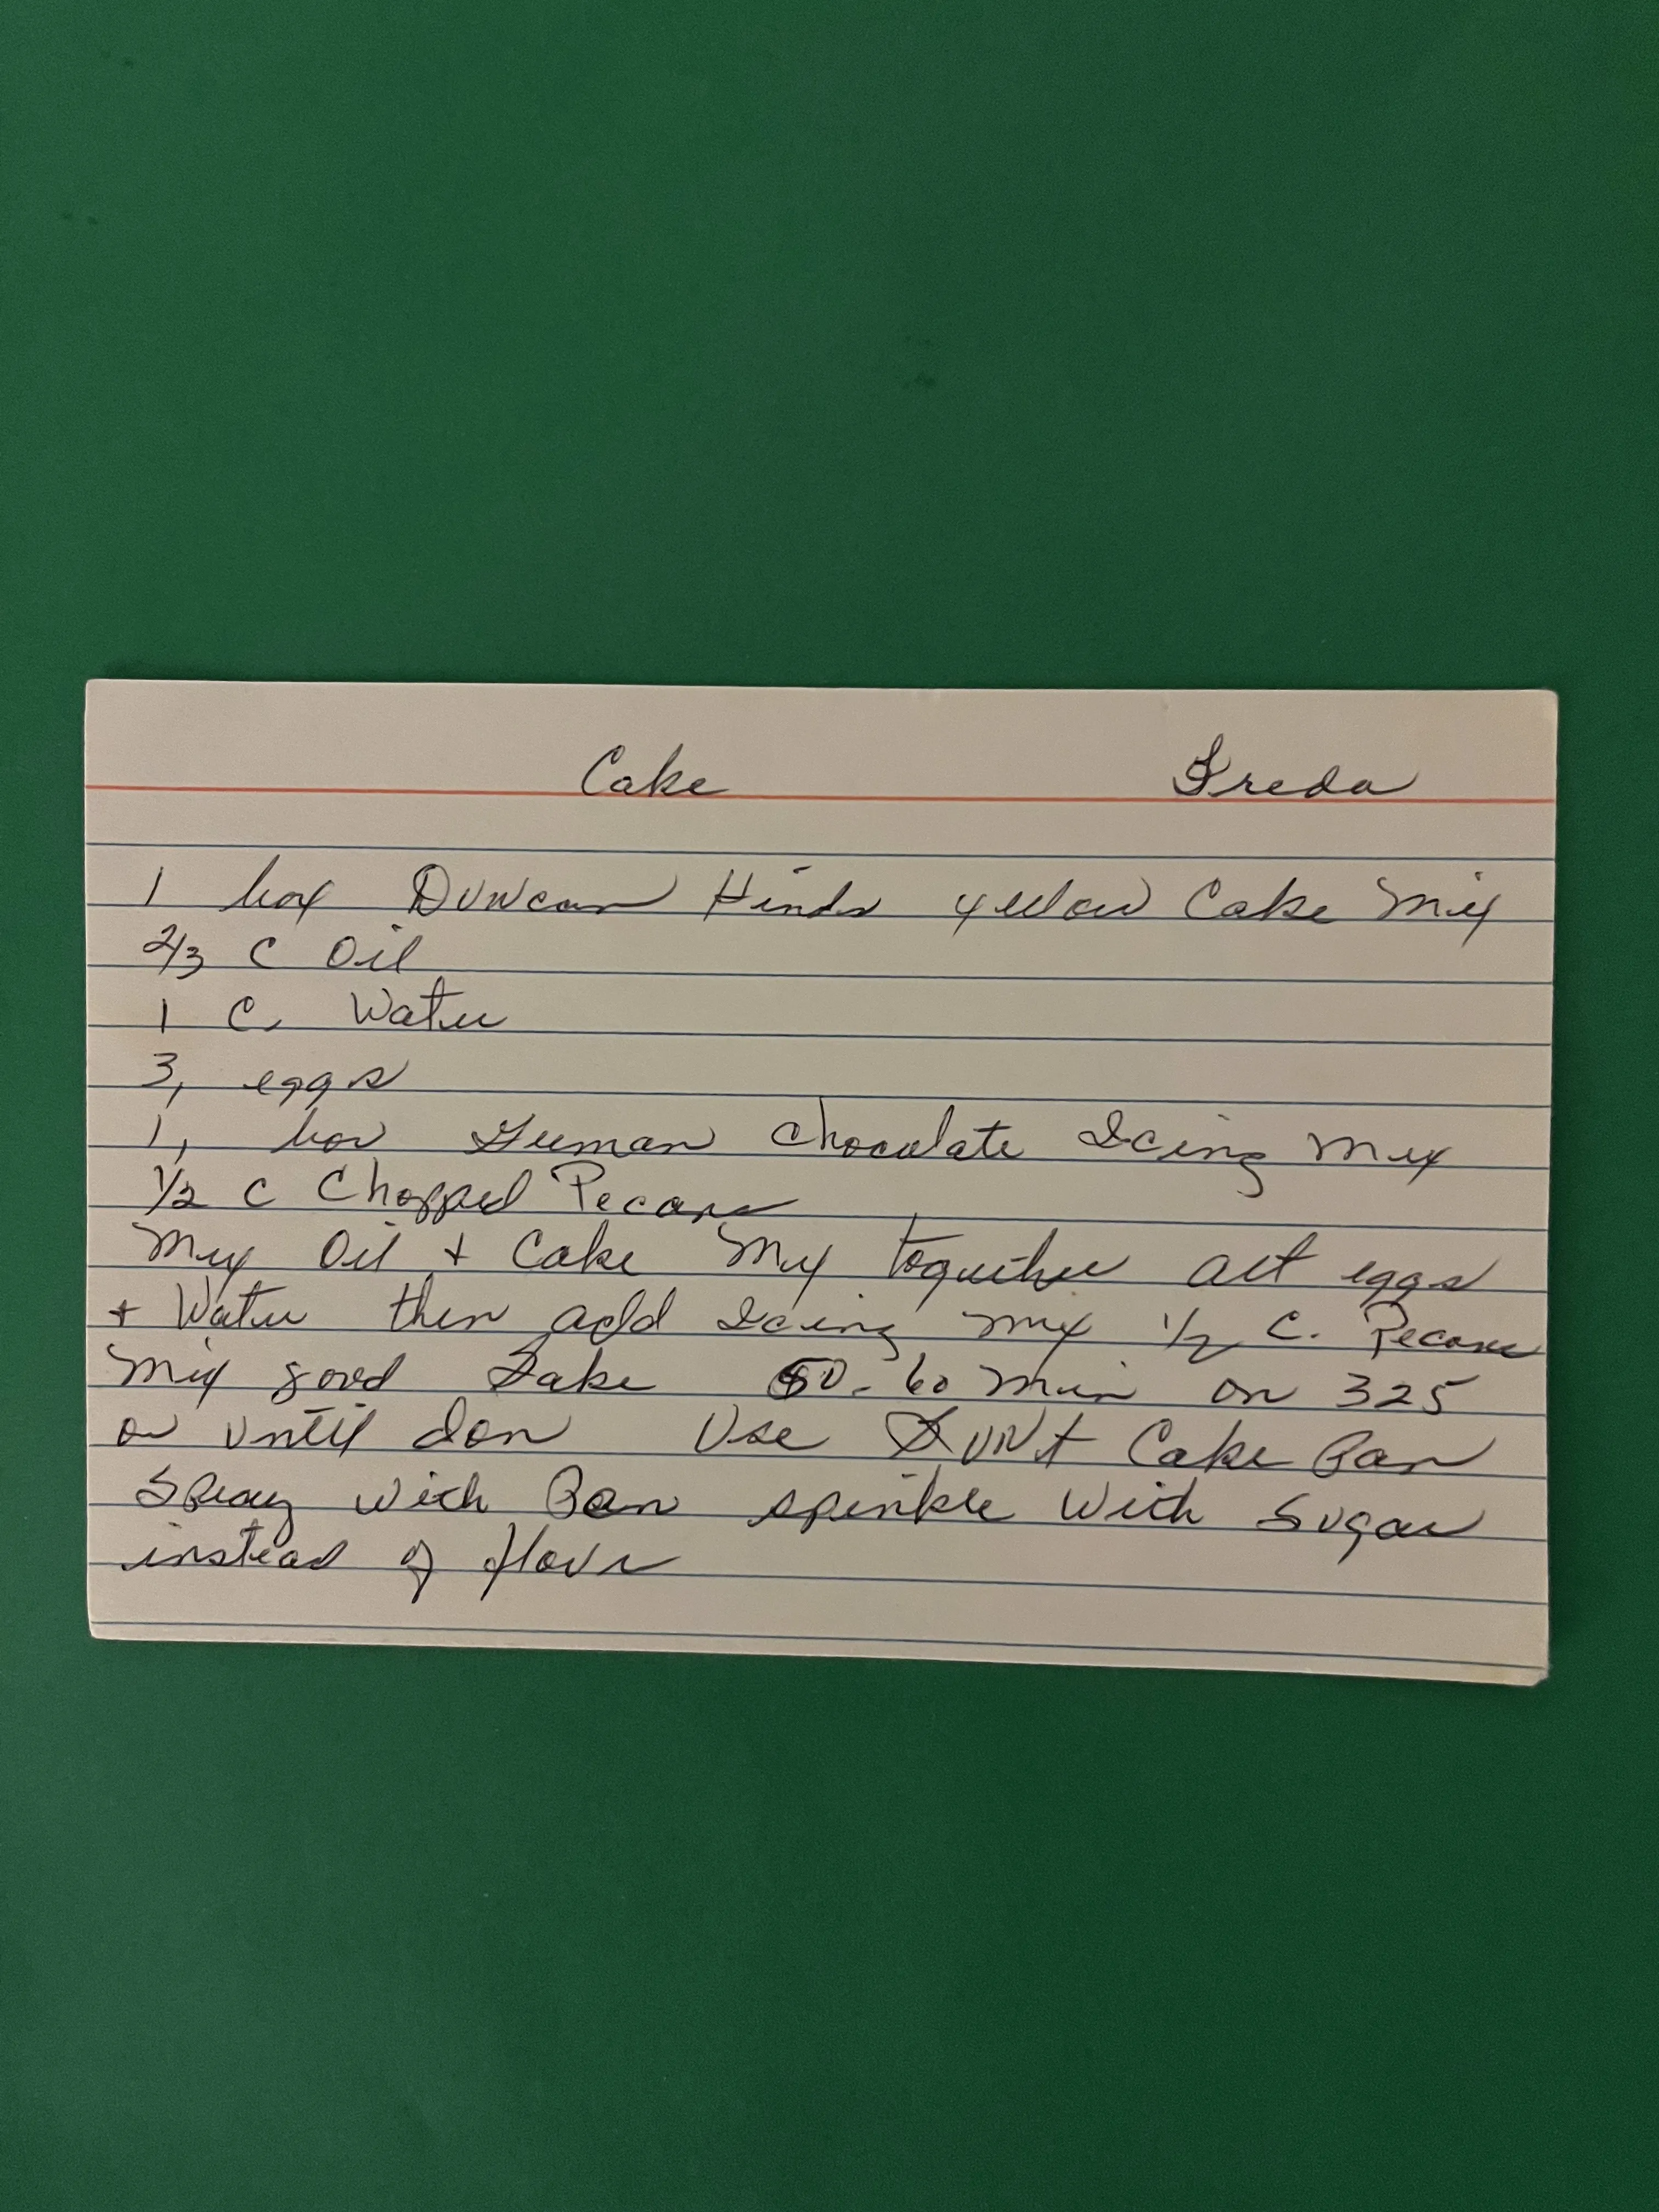 Cake Freda
1 box Duncan Hinds yellow Cake Mix
2/3 C Oil
1 C. Water
3, eggs
1, box German Chocolate Icing Mix
1/2 C Chopped Pecans
Mix Oil + Cake Mix together alt eggs
+ Water then add Icing mix 1/2 C. Pecans
Mix good Bake 50-60 min on 325
or until don Use Bunt Cake Pan
Spray with Pam sprinkle with Sugar
instead of flour